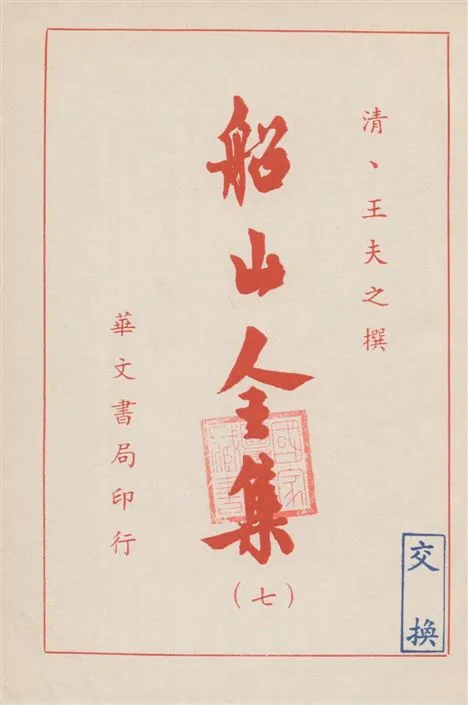 清、王夫之撰
船山全集
(七)
華文書局印行
國家
藏書
交換